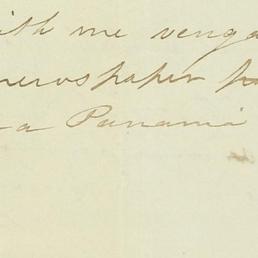 ith me venga
newspaper
a Panama